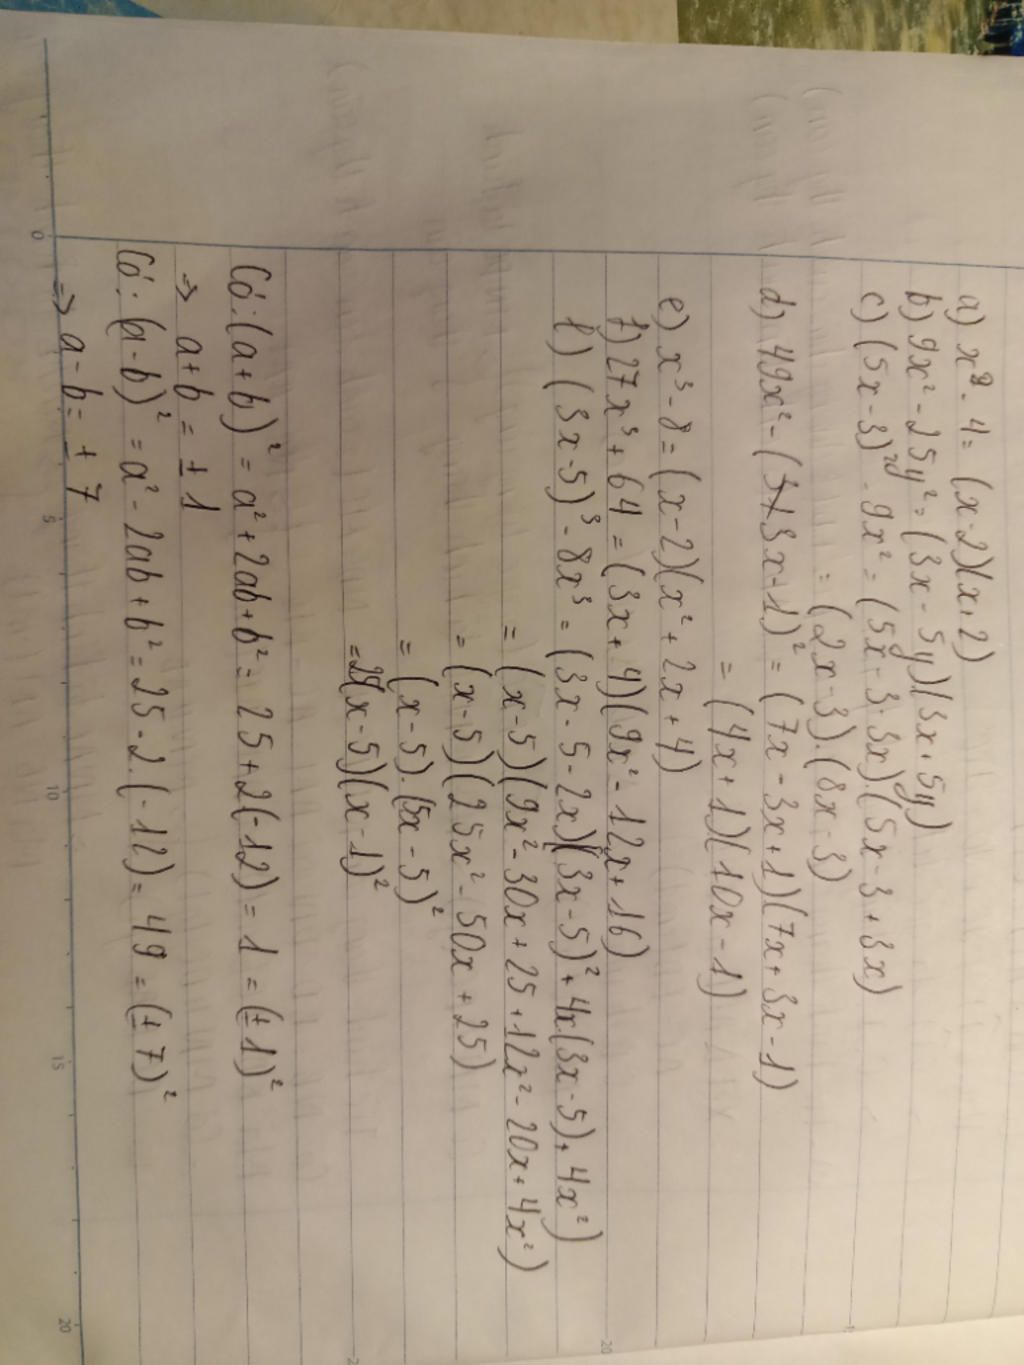 a) x² - 4 = (x-2)(x+2)
b) 9x² - 25y² = (3x - 5y)(3x+5y)
c) (5x-3)² - 9x² = (5x - 3 - 3x).(5x - 3 + 3x)
= (2x - 3).(8x - 3)
d) 49x² - (3x - 1)² = (7x - 3x + 1)(7x + 3x - 1)
= (4x + 1)(10x - 1)
e) x³ - 8 = (x - 2)(x² + 2x + 4)
f) 27x³ + 64 = (3x + 4)(9x² - 12x + 16)
f) (3x-5)³ - 8x³ = (3x - 5 - 2x)(3x-5)² + 4x.(3x-5) + 4x²)
= (x-5)(9x² - 30x + 25 + 12x² - 20x + 4x²)
= (x-5)(25x² - 50x + 25)
= (x-5).(5x-5)²
= 25(x-5)(x-1)²
Có: (a+b)² = a² + 2ab + b² = 25 + 2(-12) = 1 = (±1)²
=> a+b = ±1
Có: (a-b)² = a² - 2ab + b² = 25 - 2.(-12) = 49 = (±7)²
=> a-b = ±7
0 5 10 15 20
20